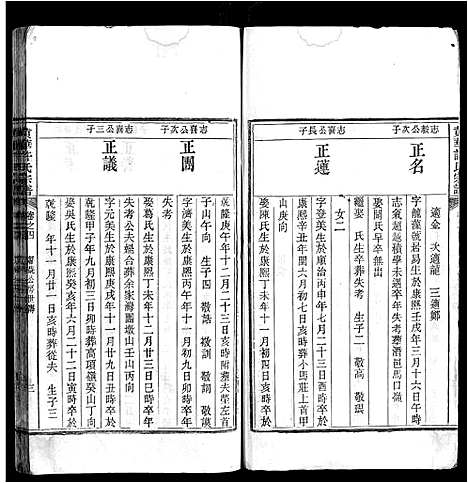 適金 次適龍 三適鄭
志毅公次子
正名
字龍漢號君易生於康熙壬戌年三月十六日午時
志氣超越積學未遇卒年失考葬酒邑馬口
娶關氏早卒無出
繼娶 氏生卒葬失考 生子二 敬高 敬琨
女二
志喜公長子
正蓮
字登美生於順治丙申年七月二十三日酉時卒於
康熙辛丑年閏六月二十三日辰時葬小馬莊上首甲
山庚向
娶陳氏生於康熙年十一月初四日亥時
乾隆庚午年十二月二十三日亥時附葬夫塋左首
子山午向 生子四 敬 敬訓 敬詞 敬謨
志喜公次子
正國
字濟美生於康熙丙午年十一月初九日卯時卒葬
失考
娶葛氏生於康熙丁未年十二月廿三日巳時卒年
失考公妣合葬余家灣團墩山壬山丙向
志喜公三子
正議
字元美生於康熙庚戌年十一月十九日丑時卒於
乾隆甲子年九月初三日卯時葬高頂嶺癸山丁向
娶吳氏生於康熙癸亥年六月二十八日戌時卒於
乾隆 年十一月廿一日亥時葬從夫 生子三
卷之四
三